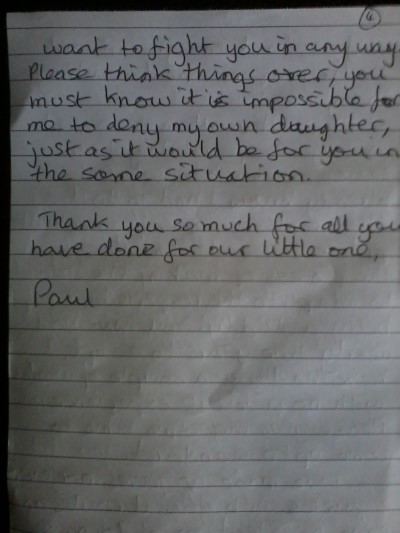 4
want to fight you in any way.
Please think things over, you
must know it is impossible for
me to deny my own daughter,
just as it would be for you in
the same situation.
Thank you so much for all you
have done for our little one,
Paul